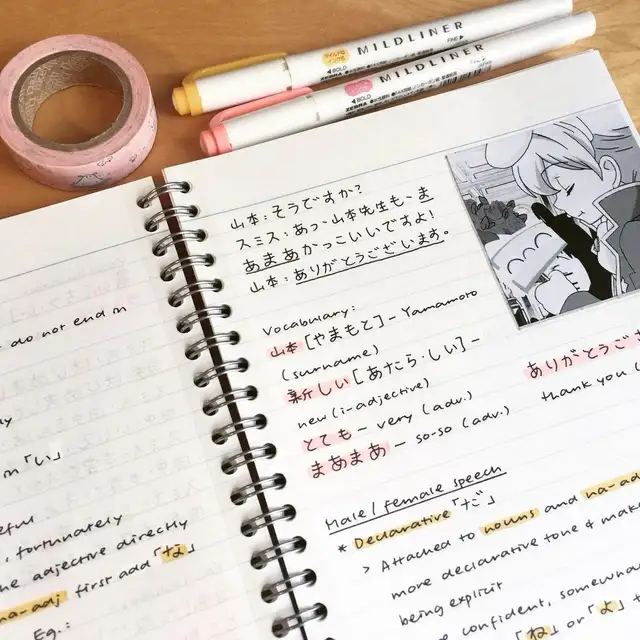 MILDLINER
BOLD
FINE
ZEBRA
MILDLINER
BOLD
ZEBRA
do not end in
「い」
fortunately
the adjective directly
na-adj first add「な」
Eg.:
山本:そうですか?
スミス:あっ、山本先生も、ま
あまあかっこいいですよ!
山本:ありがとうございます。
Vocabulary:
山本[やまもと]- Yamamoto
(surname)
新しい[あたら・しい]-
new (i-adjective)
とても - very (adv.)
まあまあ - so-so (adv.)
ありがとうご
thank you (
Male / female speech
* Declarative「だ」
> Attached to nouns and na-ad
more declarative tone & make
being explicit
confident, somewha
「ね」or「よ」t